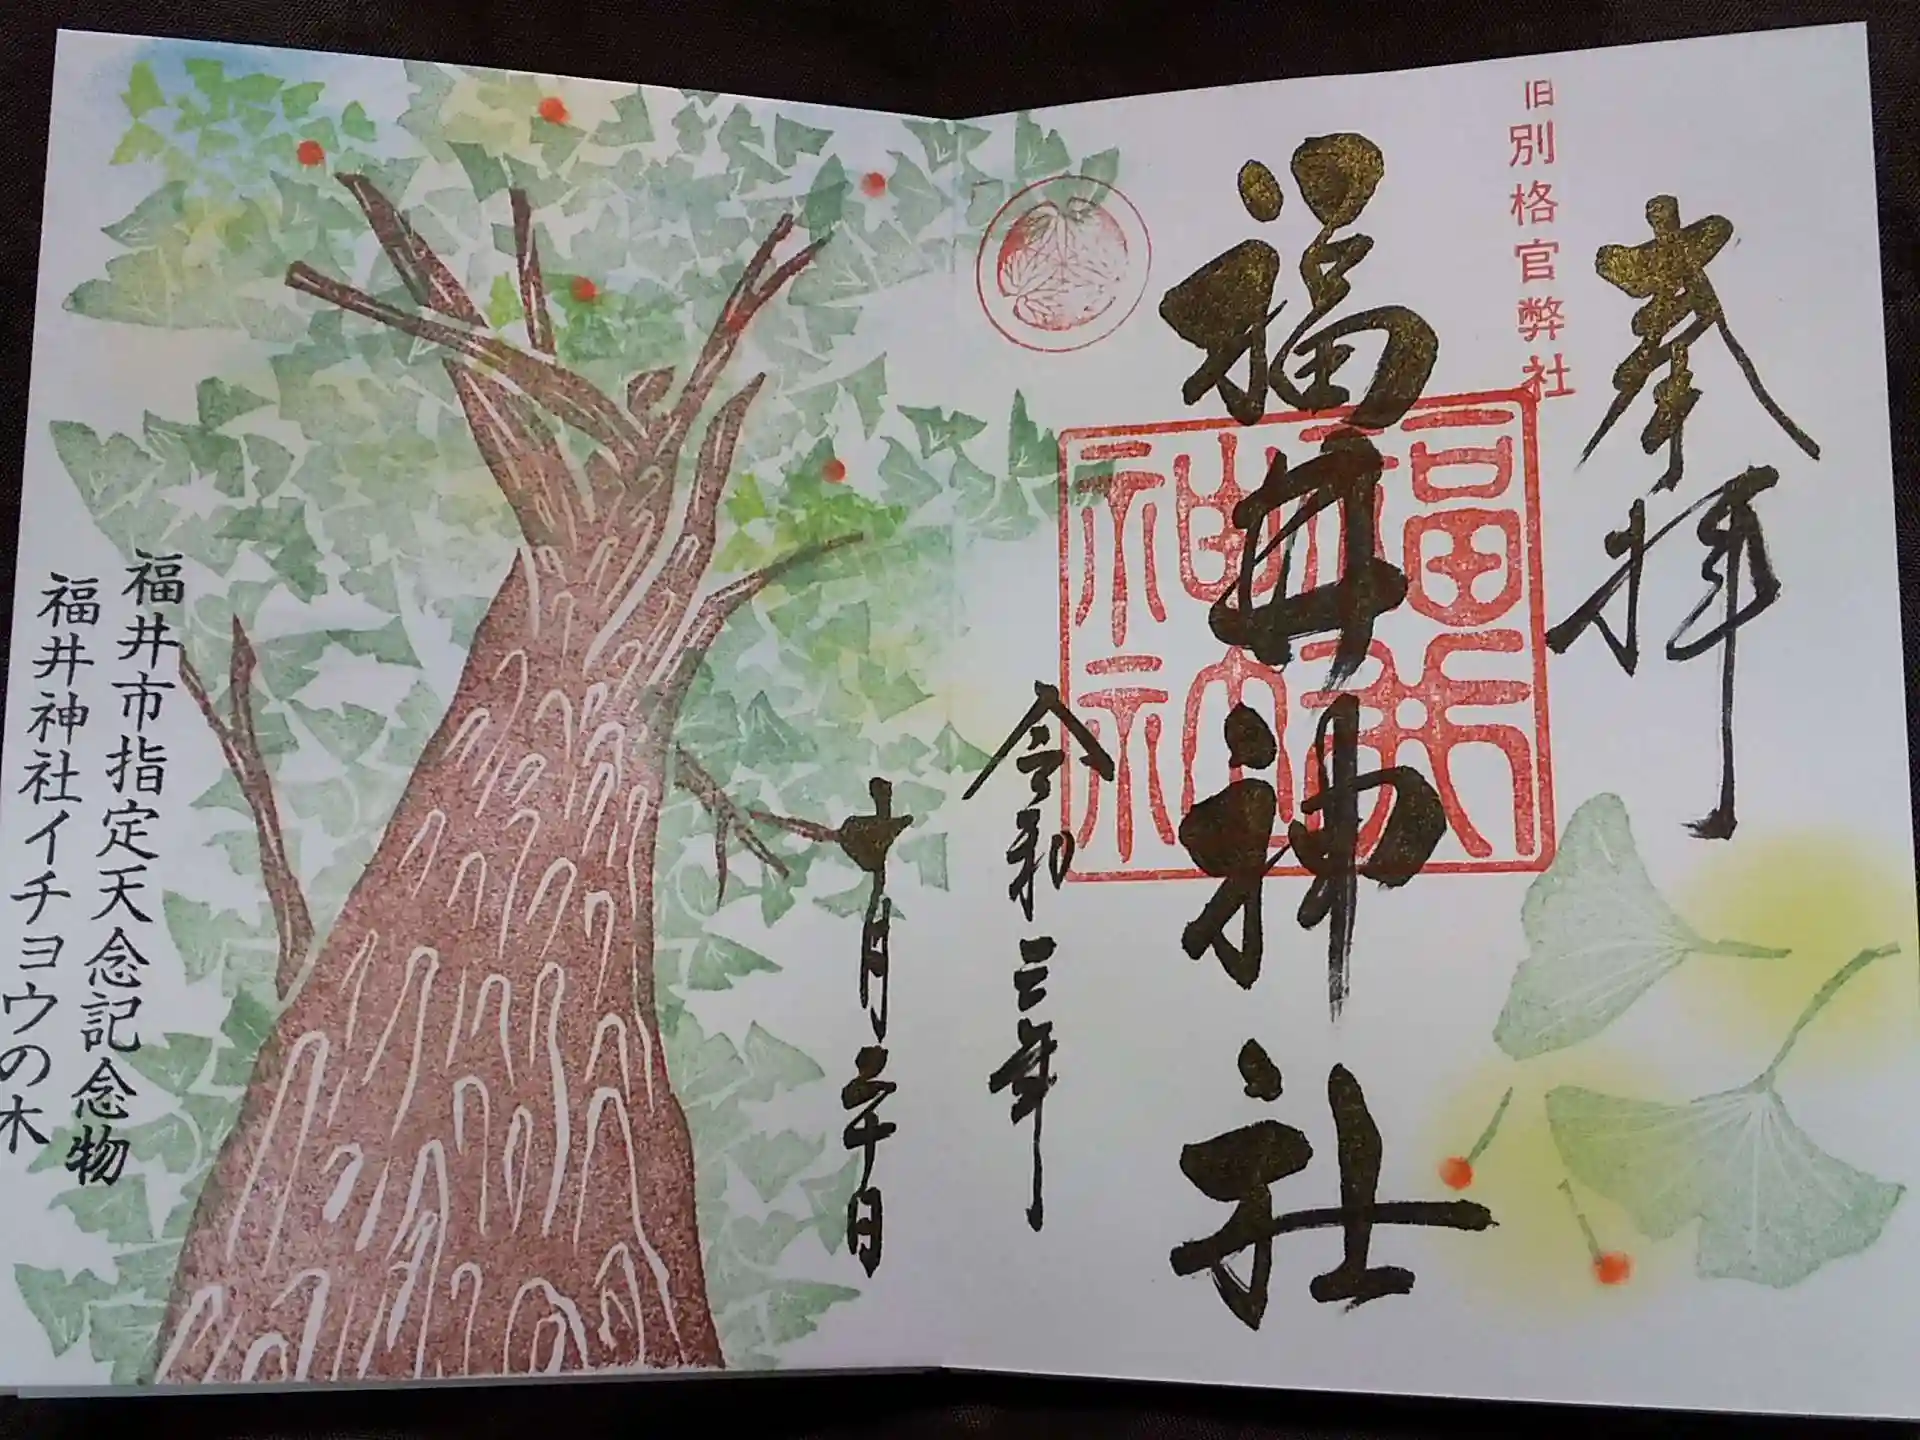 奉拝
旧別格官弊社
福井神社
福井神社
令和三年
十月二十日
福井市指定天念記念物
福井神社イチヨウの木